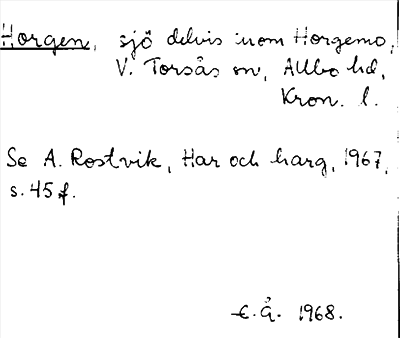 Horgen, sjö delvis inom Horgemo,
V. Torsås sn, Allbo hd,
Kron. l.
Se A. Rostvik, Har och harg, 1967,
s. 45 f.
E.Å. 1968.